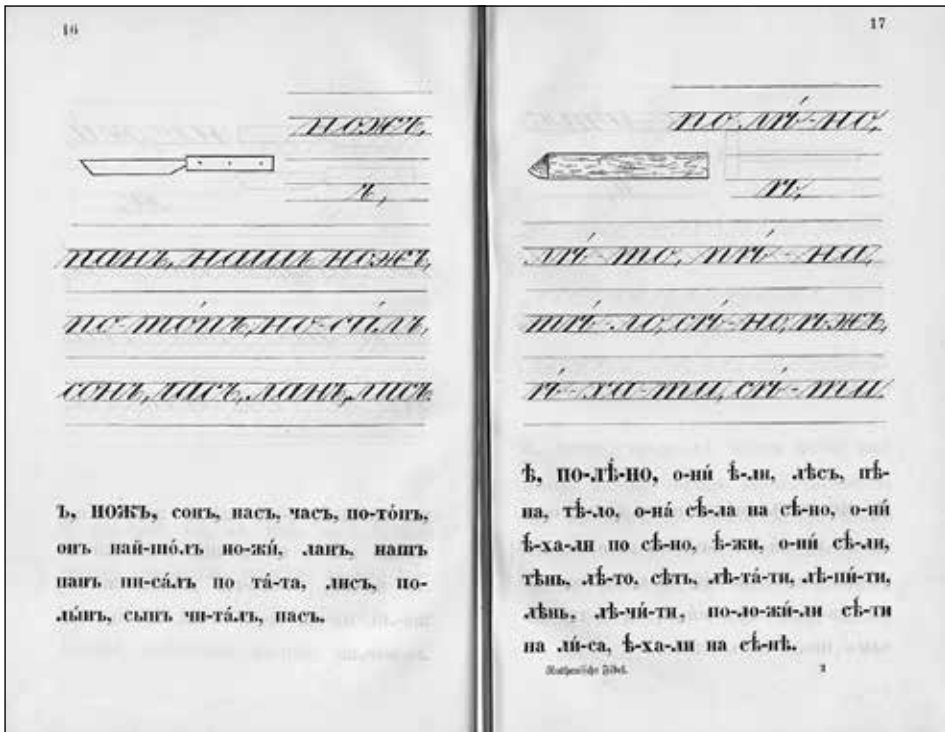 16
ножъ,
ъ,
панъ, нашъ ножъ,
по-то́пъ, но-си́лъ,
сонъ, часъ, ланъ, лисъ
Ъ, НОЖЪ, сонъ, насъ, часъ, по-то́пъ,
онъ най-шо́лъ но-жи́, ланъ, нашъ
панъ пи-са́лъ по та́-та, лисъ, по-
лы́нъ, сынъ чи-та́лъ, пасъ.
17
по-лѣ́-но,
ѣ,
лѣ́-то, пѣ́-на,
тѣ́-ло, сѣ́-но, ѣжъ,
ѣ́-ха-ти, сѣ́-ти
Ѣ, ПО-ЛѢ́-НО, о-ни́ ѣ́-ли, лѣсъ, пѣ́-
на, тѣ́-ло, о-на́ сѣ́-ла на сѣ́-но, о-ни́
ѣ́-ха-ли по сѣ́-но, ѣ́-жи, о-ни́ сѣ́-ли,
тѣнь, лѣ́-то, сѣть, лѣ-та́-ти, лѣ-пи́-ти,
лѣнь, лѣ-чи́-ти, по-ло-жи́-ли сѣ́-ти
на ли́-са, ѣ́-ха-ли на сѣ́-нѣ.
Ruthenische Fibel. 2